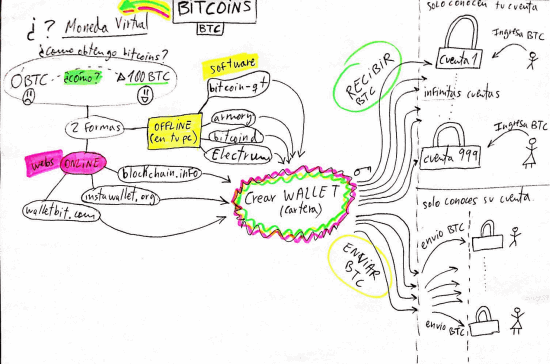 BITCOINS
BTC
¿? Moneda Virtual
¿como obtengo bitcoins?
0BTC ¿cómo? 100BTC
2 formas
OFFLINE
(en tu pc)
software
bitcoin-qt
armory
bitcoind
Electrum
webs ONLINE
blockchain.info
instawallet.org
walletbit.com
Crear WALLET
(cartera)
RECIBIR
BTC
ENVIAR
BTC
solo conocen tu cuenta
Ingresa
BTC
cuenta 1
infinitas cuentas
Ingresa
BTC
cuenta 999
solo conoces su cuenta
envio BTC
envio BTC